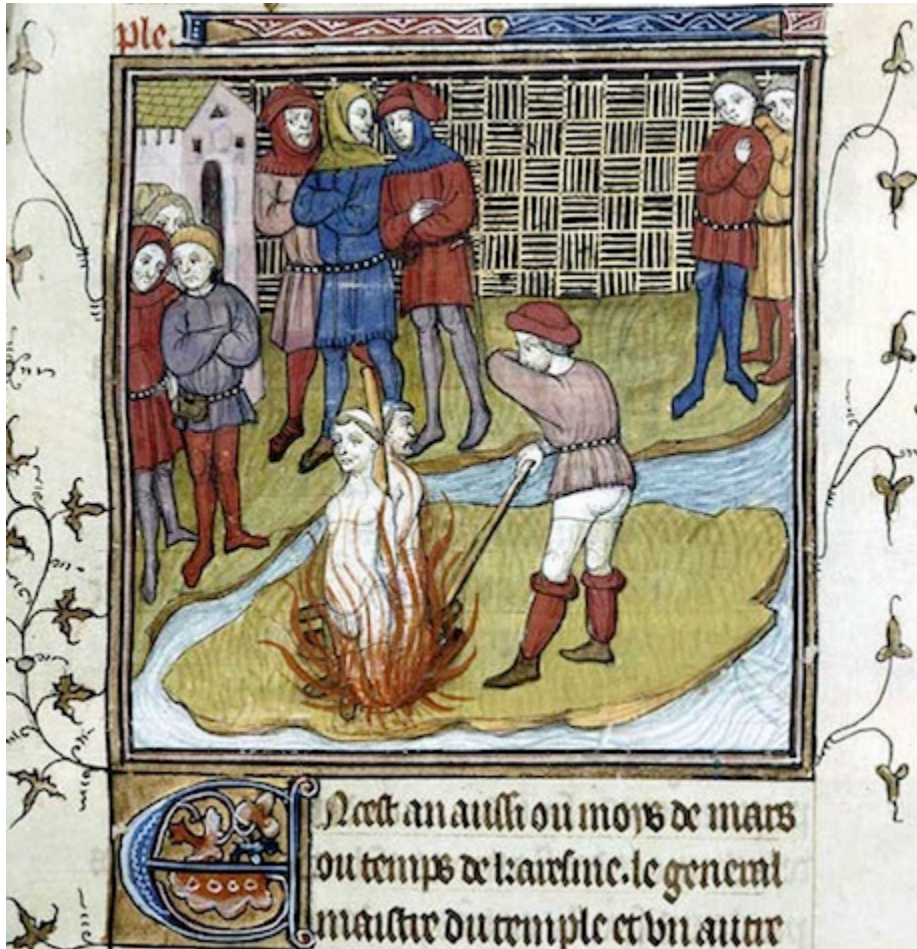 ple.
En cest an aussi ou moys de mars
ou temps de karesme. le general
maistre du temple et vn autre